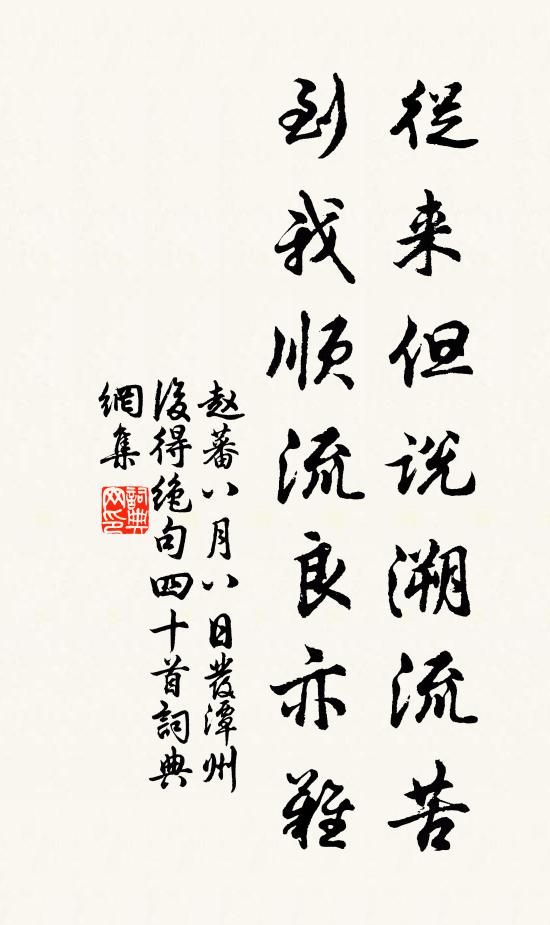 從来但説溯流苦
到我順流良亦難
赵蕃八月八日發潭州
後得絶句四十首詞典
網集
詞典
网印